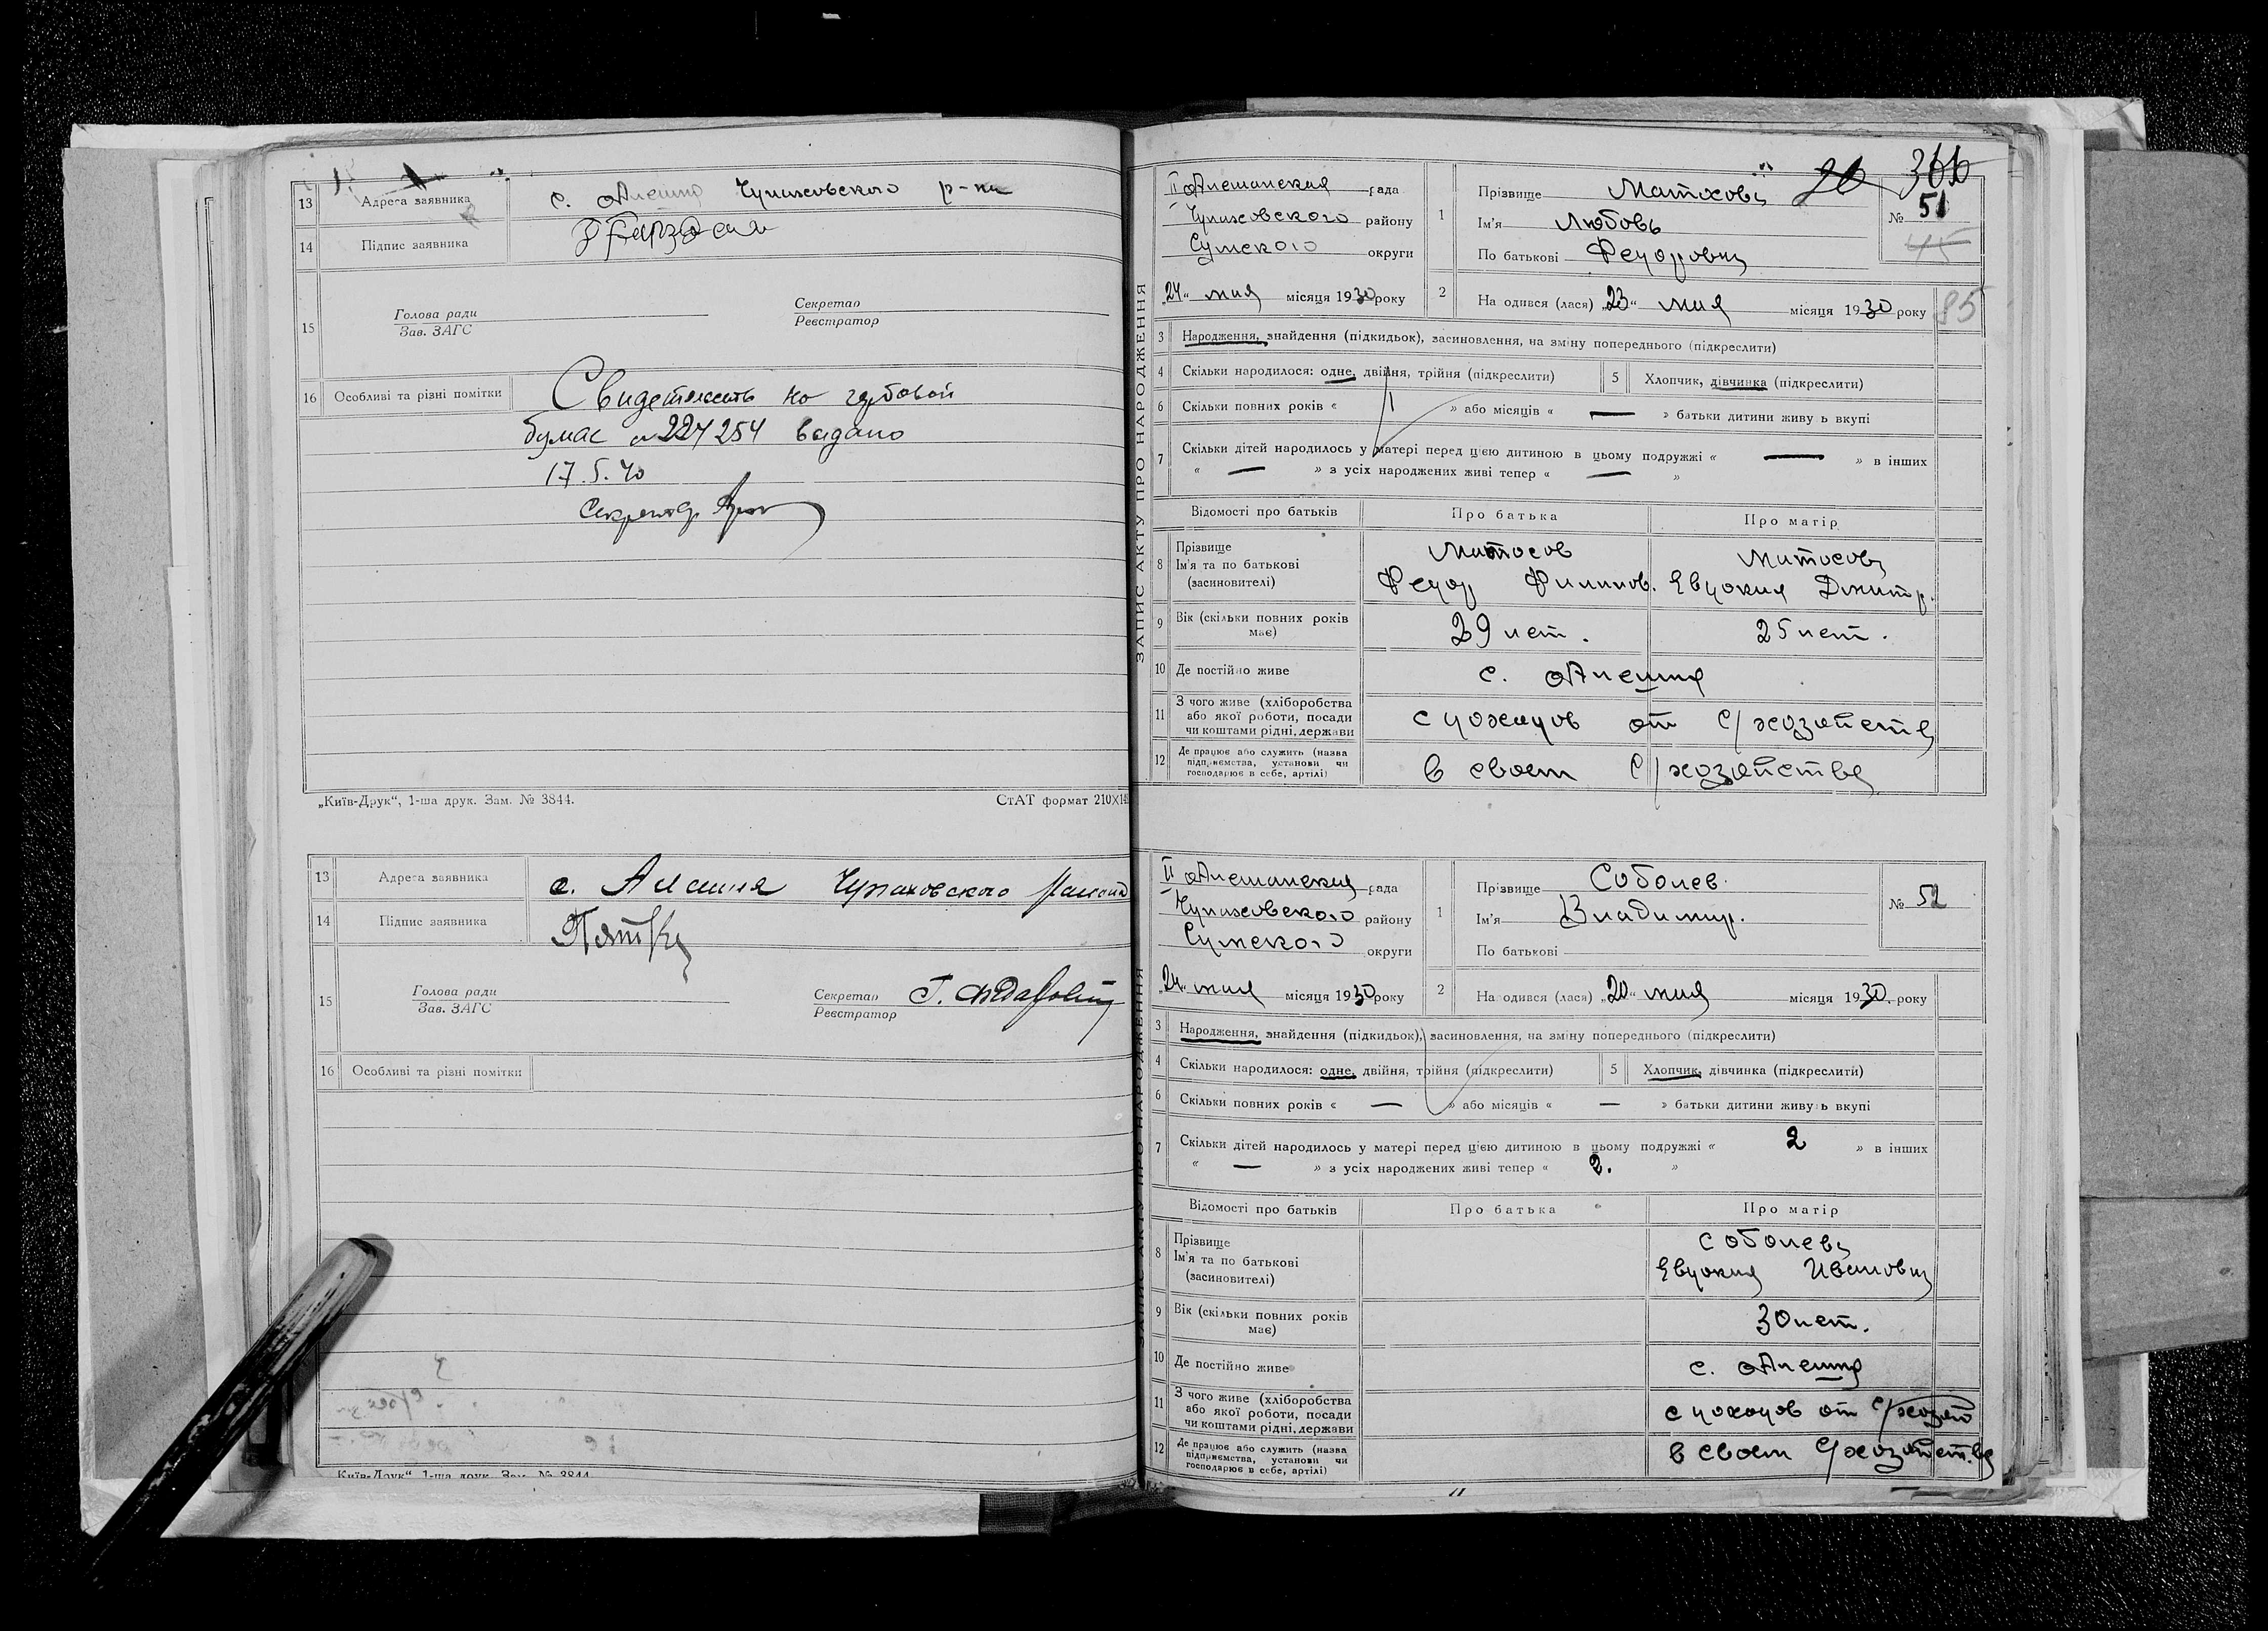 13 Адреса заявника с. Алешня Чупаховского р-на
14 Підпис заявника
15 Голова ради
Зав. ЗАГС
Секретар
Реєстратор
16 Особливі та різні помітки Свидетельств на гербовой
бумаг № 227254 выдано
17.5.40
Секретар
„Київ-Друк“, 1-ша друк. Зам. № 3844.
СтАТ формат 210X14
13 Адреса заявника с. Алешня Чупаховского района
14 Підпис заявника
15 Голова ради
Зав. ЗАГС
Секретар
Реєстратор
16 Особливі та різні помітки
„Київ-Друк“, 1-ша друк. Зам. № 3844
ЗАПИС АКТУ ПРО НАРОДЖЕННЯ
366
20
II Алешанская рада
Чупаховского району
Сумского округи
24 мая місяця 1930 року
1 Прізвище Матосова
Ім'я Любовь
По батькові Федоровна
№ 51
45
2 Народився (лася) „23“ мая місяця 1930 року
85
3 Народження, знайдення (підкидьок), засиновлення, на зміну попереднього (підкреслити)
4 Скільки народилося: одне, двійня, трійня (підкреслити) 5 Хлопчик, дівчинка (підкреслити)
6 Скільки повних років « 1 » або місяців « — » батьки дитини живуть вкупі
7 Скільки дітей народилось у матері перед цією дитиною в цьому подружжі « — » в інших
« — » з усіх народжених живі тепер « — »
Відомості про батьків Про батька Про матір
8 Прізвище Матосов Матосова
Ім'я та по батькові Федор Филипов. Евдокия Дмитр.
(засиновителі)
9 Вік (скільки повних років має) 29 лет. 25 лет.
10 Де постійно живе с. Алешня
11 З чого живе (хліборобства
або якої роботи, посади с доходов от с/хозяйства
чи коштами рідні, держави
12 Де працює або служить (назва
підприємства, установи чи в своем с/хозяйстве
господарює в себе, артілі)
ЗАПИС АКТУ ПРО НАРОДЖЕННЯ
II Алешанская рада
Чупаховского району
Сумского округи
24 мая місяця 1930 року
1 Прізвище Соболев
Ім'я Владимир.
По батькові
№ 52
2 Народився (лася) „20“ мая місяця 1930. року
3 Народження, знайдення (підкидьок), засиновлення, на зміну попереднього (підкреслити)
4 Скільки народилося: одне, двійня, трійня (підкреслити) 5 Хлопчик, дівчинка (підкреслити)
6 Скільки повних років « — » або місяців « — » батьки дитини живуть вкупі
7 Скільки дітей народилось у матері перед цією дитиною в цьому подружжі « 2 » в інших
« — » з усіх народжених живі тепер « 2. »
Відомості про батьків Про батька Про матір
8 Прізвище Соболева
Ім'я та по батькові Евдокия Ивановна
(засиновителі)
9 Вік (скільки повних років має) 30 лет.
10 Де постійно живе с. Алешня
11 З чого живе (хліборобства
або якої роботи, посади с доходов от с/хозяй
чи коштами рідні, держави
12 Де працює або служить (назва
підприємства, установи чи в своем с/хозяйстве
господарює в себе, артілі)